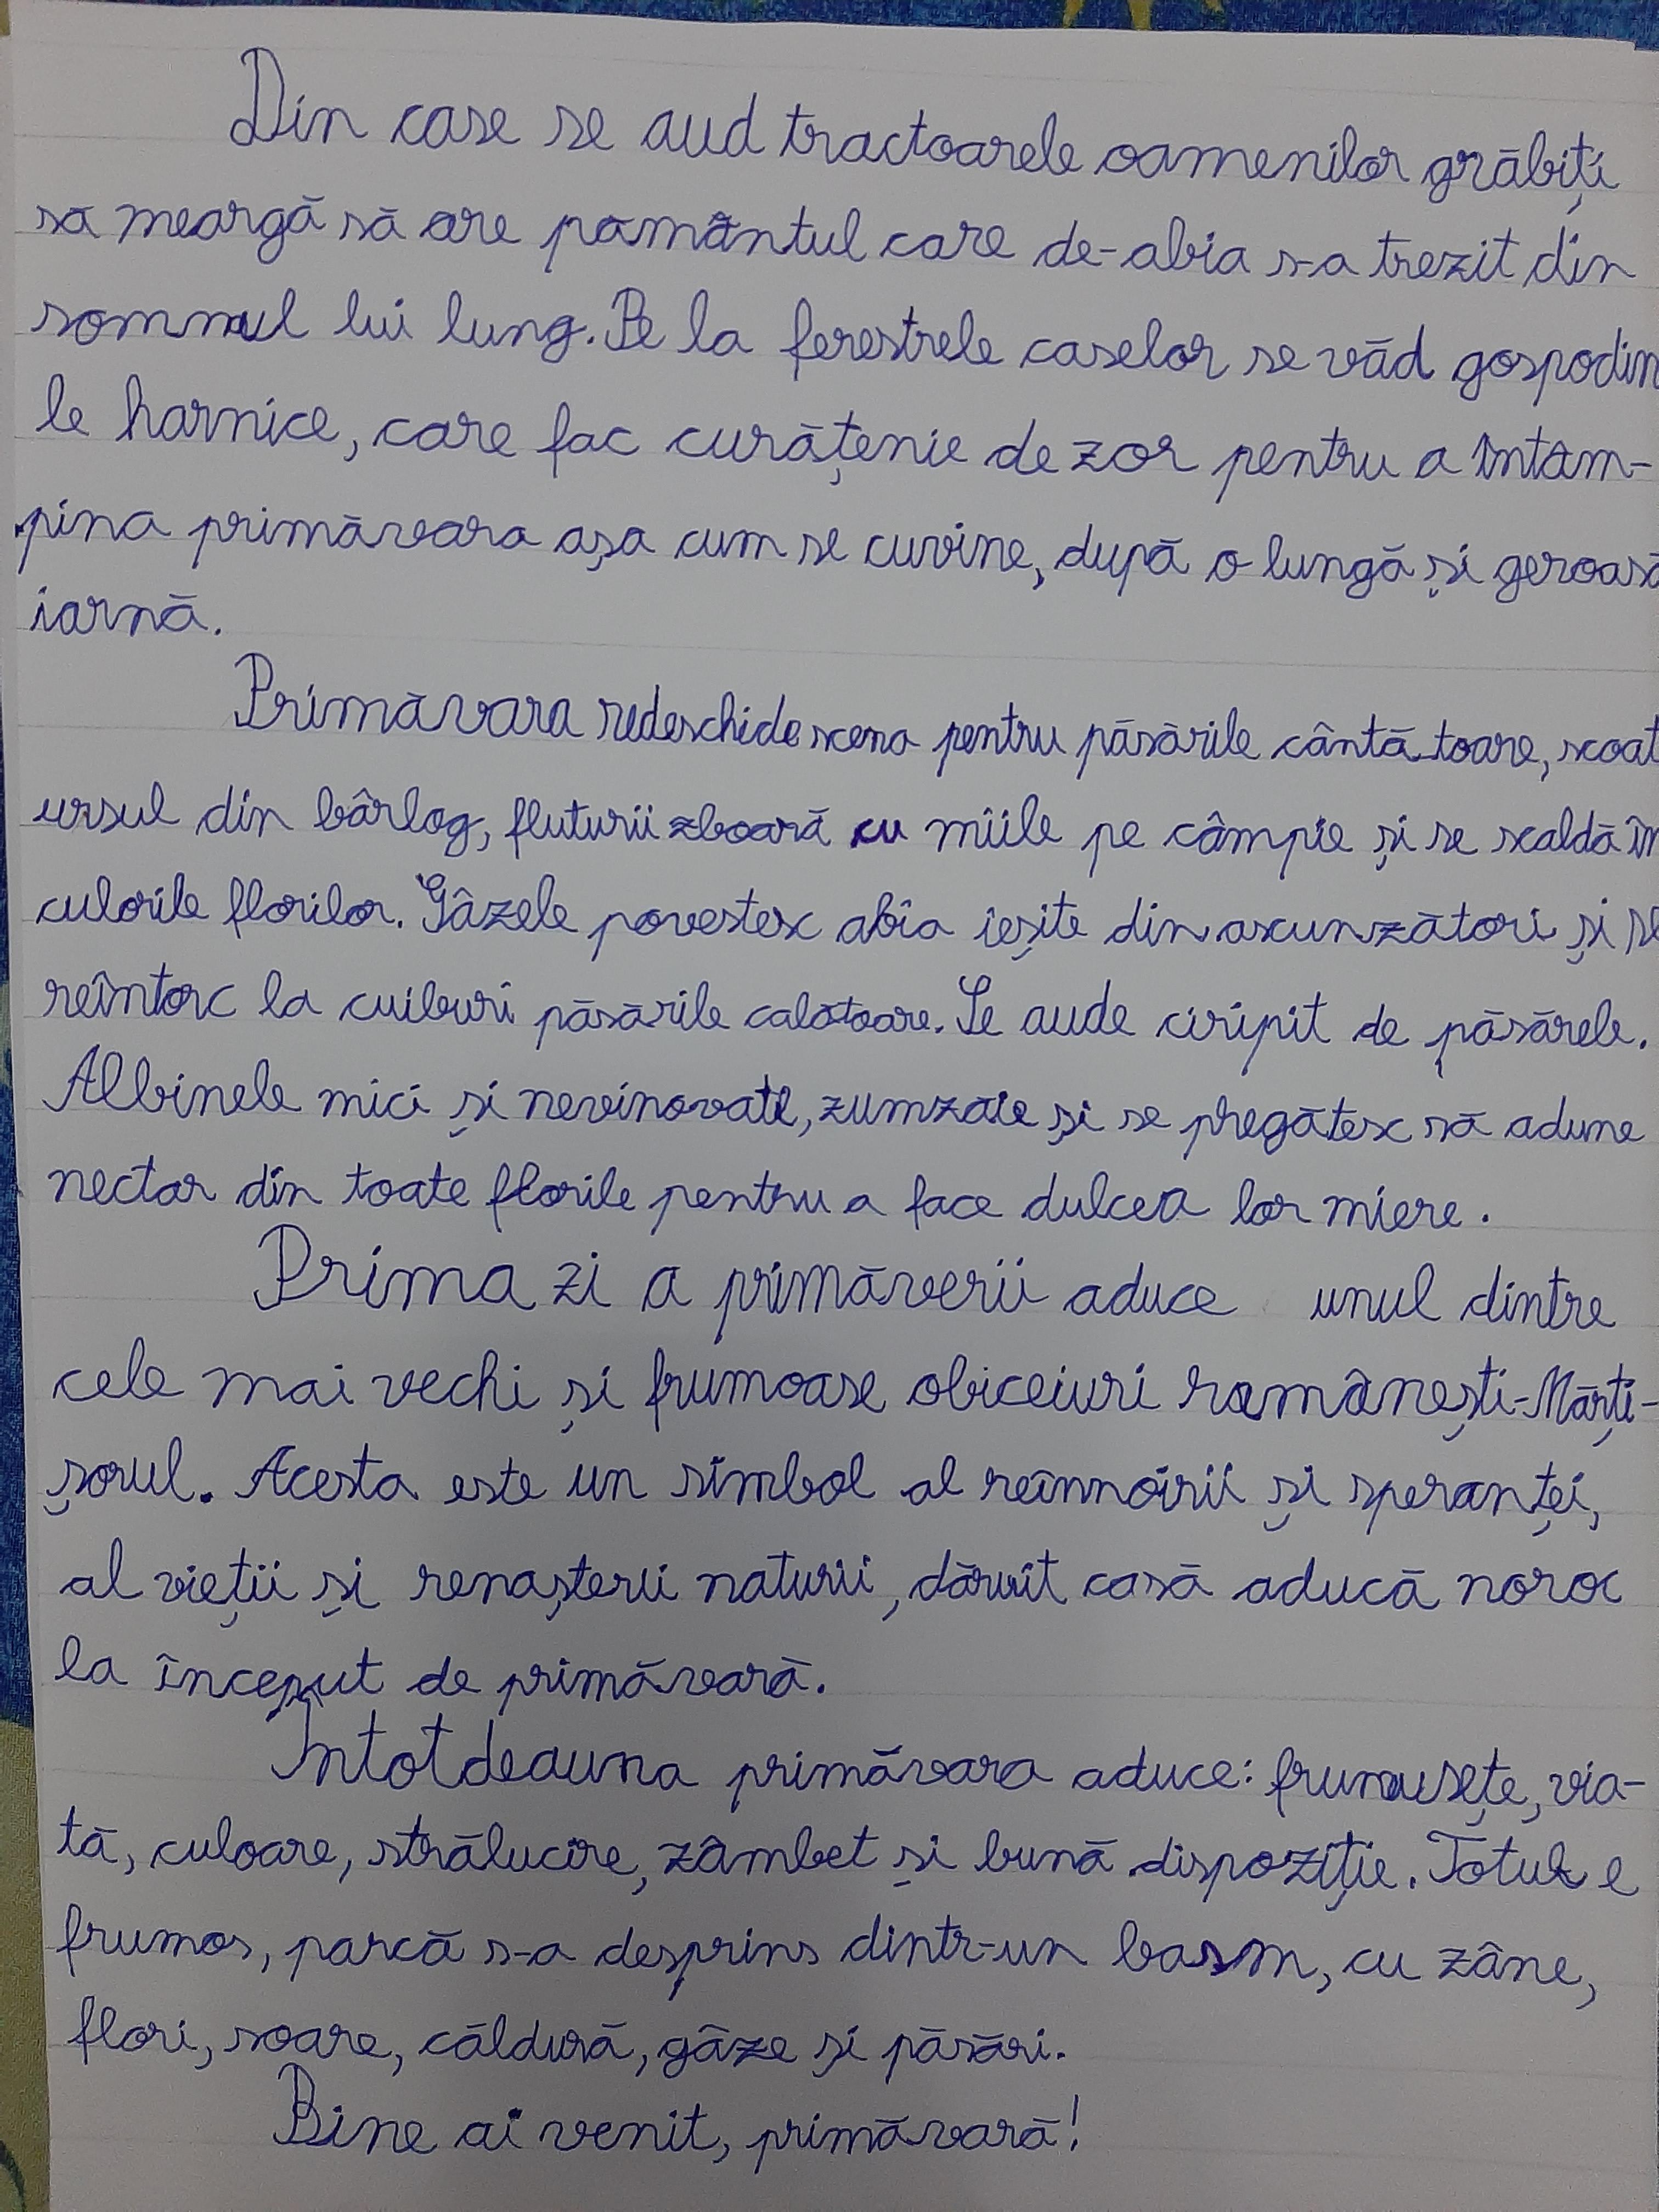 Din case se aud tractoarele oamenilor grăbiți
să meargă să are pământul care de-abia s-a trezit din
somnul lui lung. Pe la ferestrele caselor se văd gospodin
le harnice, care fac curățenie de zor pentru a întâm-
pina primăvara așa cum se cuvine, după o lungă și geroasă
iarnă.
Primăvara redeschide scena pentru păsările cântătoare, scoat
ursul din bârlog, fluturii zboară cu miile pe câmpie și se scaldă în
culorile florilor. Gâzele povestesc abia ieșite din ascunzători și se
reîntorc la cuiburi păsările calătoare. Se aude ciripit de păsărele.
Albinele mici și nevinovate, zumzăie și se pregătesc să adune
nectar din toate florile pentru a face dulcea lor miere.
Prima zi a primăverii aduce unul dintre
cele mai vechi și frumoase obiceiuri românești-Mărți-
șorul. Acesta este un simbol al reînnoirii și speranței,
al vieții și renașterii naturii, dăruit casă aducă noroc
la început de primăvară.
Întotdeauna primăvara aduce: frumusețe, via-
tă, culoare, strălucire, zâmbet și bună dispoziție. Totul e
frumos, parcă s-a desprins dintr-un basm, cu zâne,
flori, soare, căldură, gâze și păsări.
Bine ai venit, primăvară!